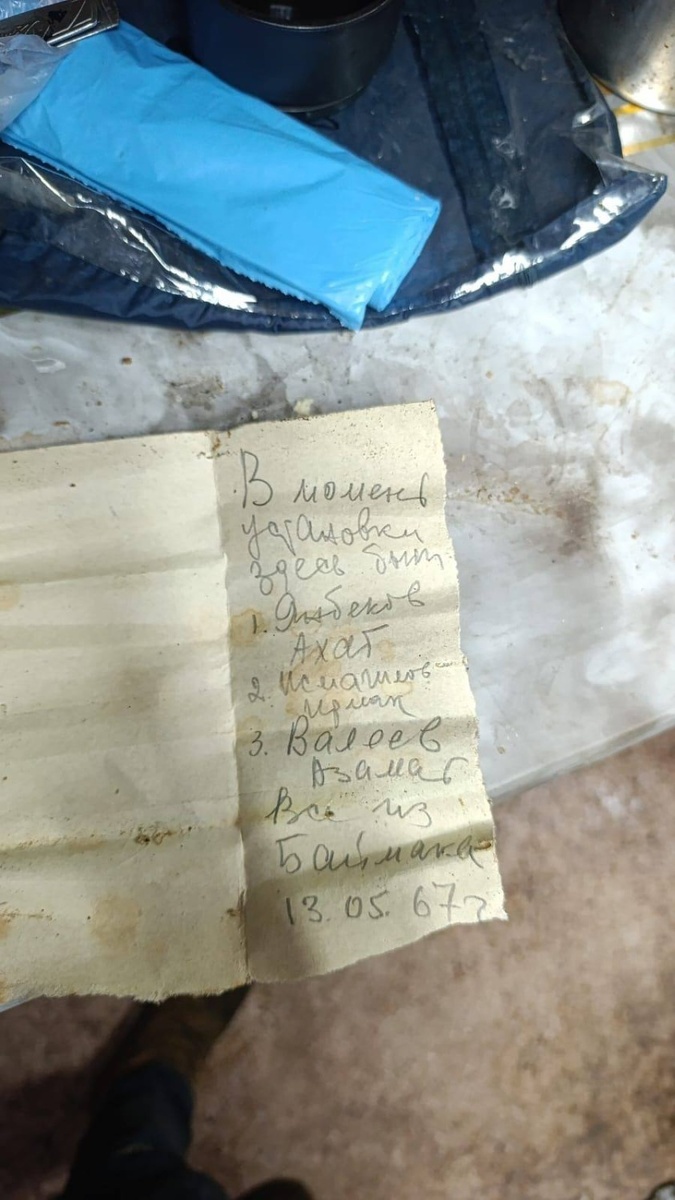 В момент
установки
здесь были
1. Янбеков
Ахат
2. Исмагилов
3. Валеев
Азамат
Все из
Баймака
13.05.67г